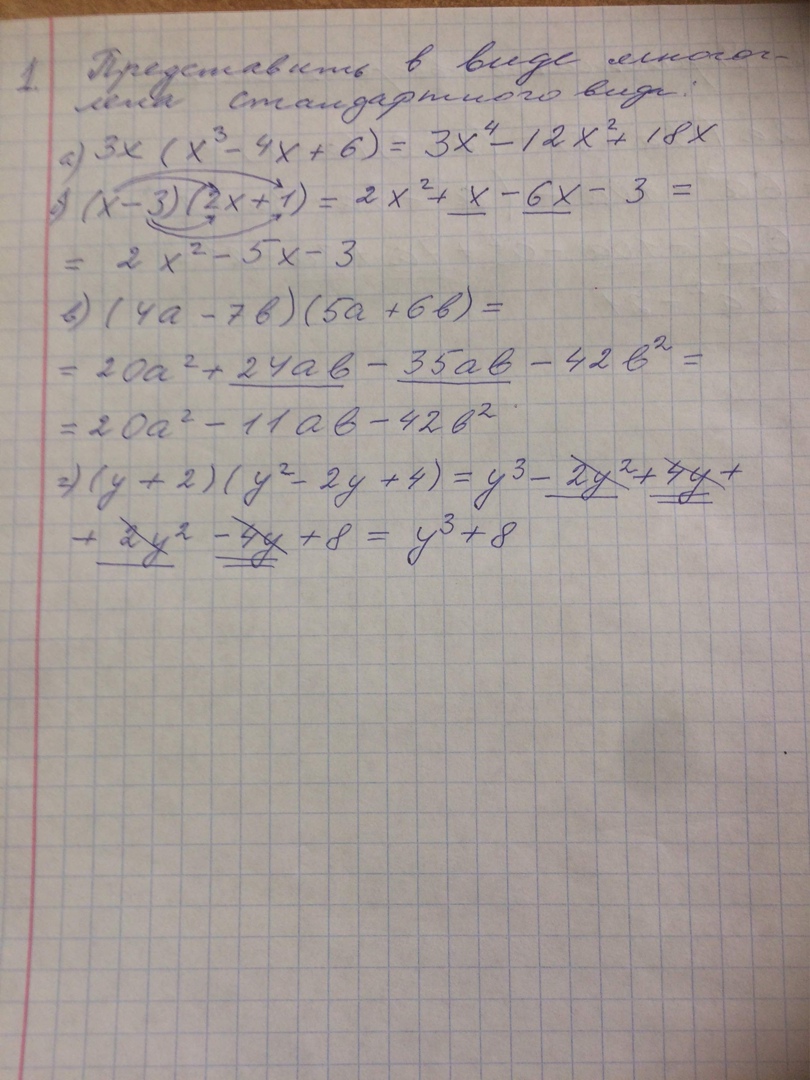 1. Представить в виде многоч-
лена стандартного вида:
а) 3x (x³ - 4x + 6) = 3x⁴ - 12x² + 18x
б) (x - 3)(2x + 1) = 2x² + x - 6x - 3 =
= 2x² - 5x - 3
в) (4a - 7b)(5a + 6b) =
= 20a² + 24ab - 35ab - 42b² =
= 20a² - 11ab - 42b²
г) (y + 2)(y² - 2y + 4) = y³ - 2y² + 4y +
+ 2y² - 4y + 8 = y³ + 8